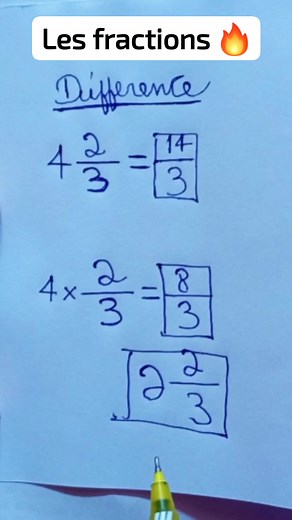 Les fractions 🔥
Difference
4 2/3 = 14/3
4 × 2/3 = 8/3
2 2/3